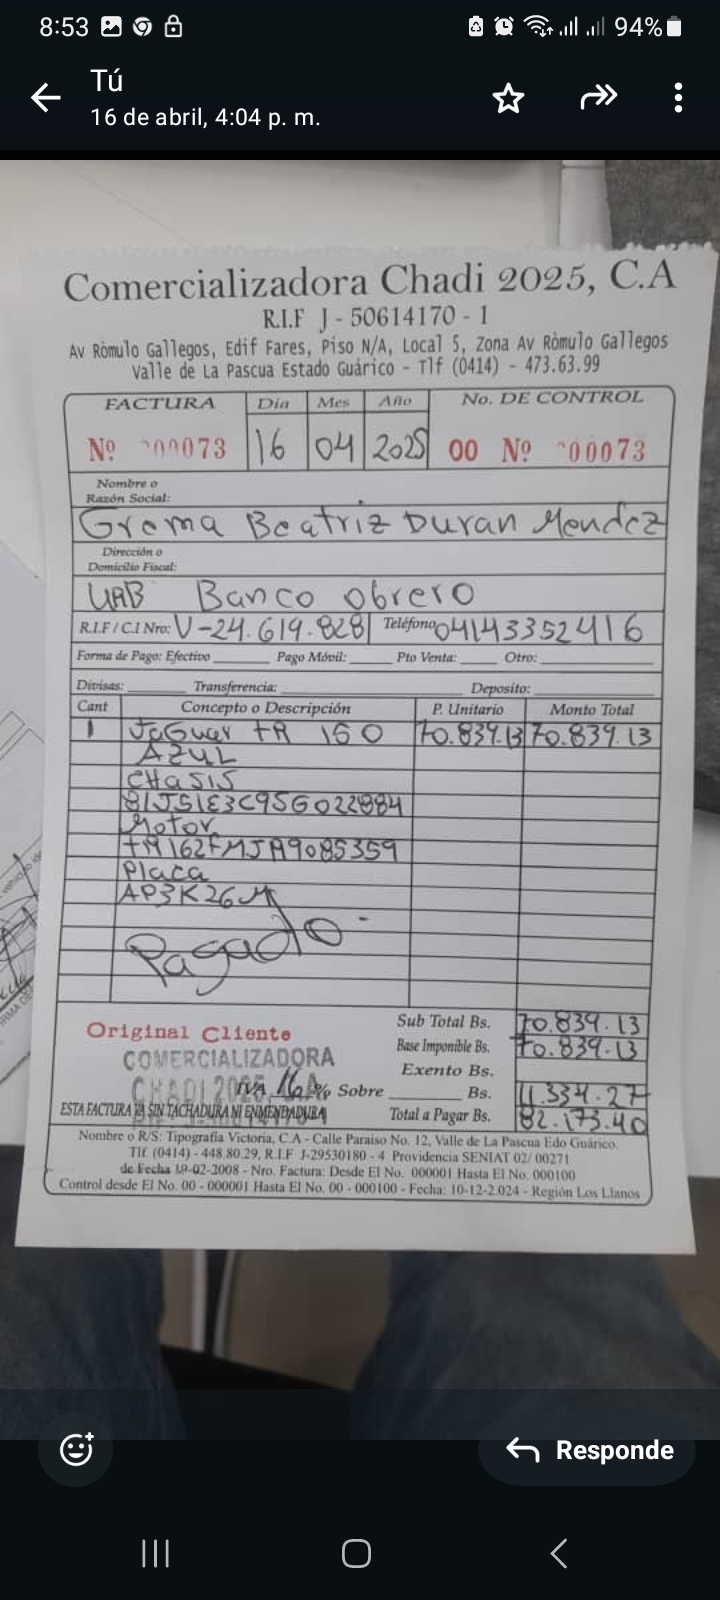 8:53 94%
Tú
16 de abril, 4:04 p. m.
Comercializadora Chadi 2025, C.A
R.I.F J - 50614170 - 1
Av Ròmulo Gallegos, Edif Fares, Piso N/A, Local 5, Zona Av Ròmulo Gallegos
Valle de La Pascua Estado Guárico - Tlf (0414) - 473.63.99
FACTURA Día Mes Año No. DE CONTROL
Nº 000073 16 04 2025 00 Nº 00073
Nombre o
Razón Social:
Grema Beatriz Duran Mendez
Dirección o
Domicilio Fiscal:
URB Banco obrero
R.I.F / C.I Nro: V-24.619.828 Teléfono 04143352416
Forma de Pago: Efectivo Pago Móvil: Pto Venta: Otro:
Divisas: Transferencia: Deposito:
Cant Concepto o Descripción P. Unitario Monto Total
1 JaGuar TR 150 70.839.13 70.839.13
AZUL
CHASIS
Motor
Placa
AP3K26M
Pagado
Sub Total Bs. 70.839.13
Original Cliente
Base Imponible Bs. 70.839.13
COMERCIALIZADORA
Exento Bs.
CHADI 2025, C.A.
IVA 16% Sobre Bs. 11.334.27
ESTA FACTURA VA SIN TACHADURA NI ENMENDADURA
Total a Pagar Bs. 82.173.40
Nombre o R/S: Tipografía Victoria, C.A - Calle Paraiso No. 12, Valle de La Pascua Edo Guárico.
Tlf. (0414) - 448.80.29, R.I.F J-29530180 - 4 Providencia SENIAT 02/ 00271
de Fecha 19-02-2008 - Nro. Factura: Desde El No. 000001 Hasta El No. 000100
Control desde El No. 00 - 000001 Hasta El No. 00 - 000100 - Fecha: 10-12-2.024 - Región Los Llanos
Responde